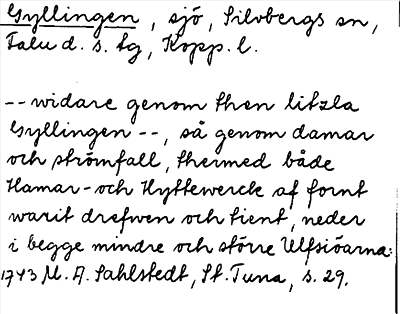 Gyllingen, sjö, Silvbergs sn,
Falu d. s. lg, Kopp. l.
-- widare genom then litzla
Gyllingen --, så genom damar
och strömfall, thermed både
Hamar- och Hyttewerck af fornt
warit drefwen och tient, neder
i begge mindre och större Ulfsiöarna:
1743 M. A. Sahlstedt, St. Tuna, s. 29.